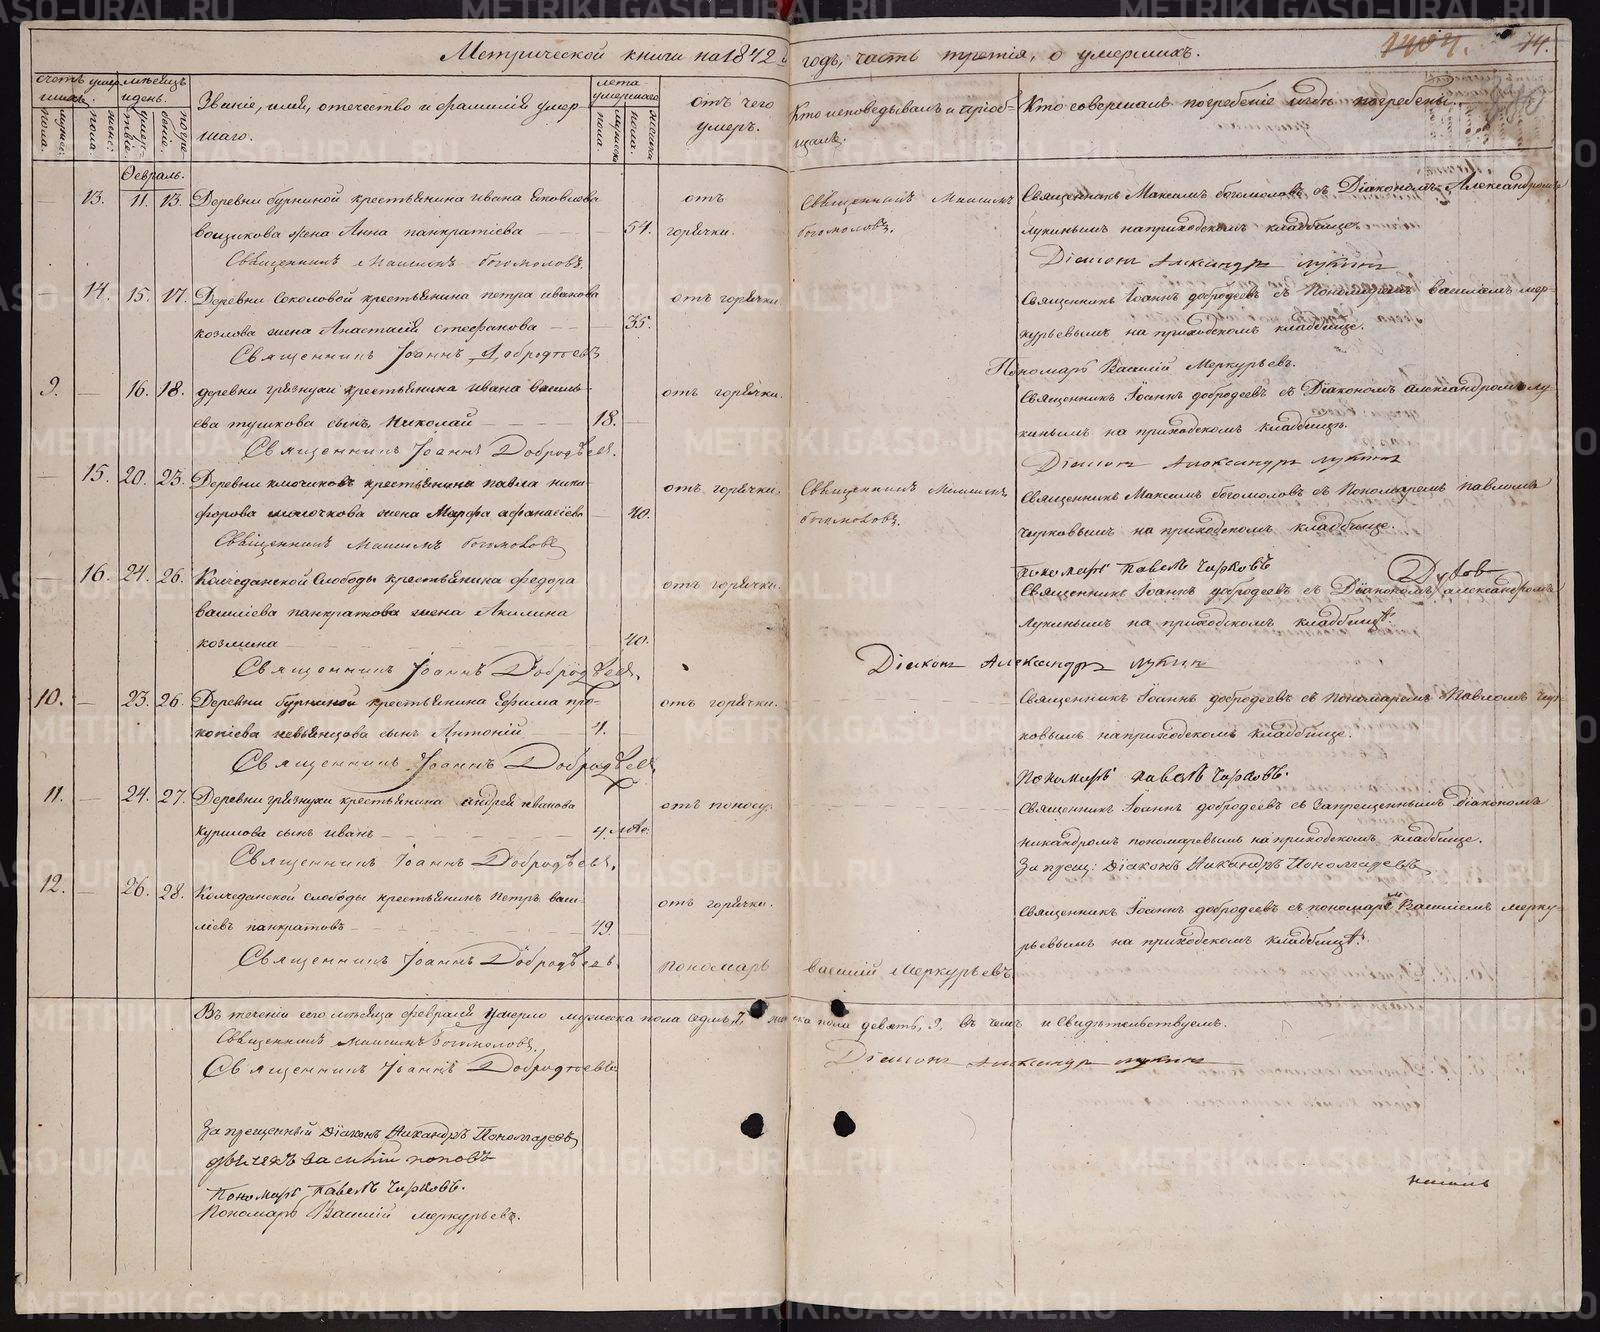 Метрической книги на 1842й годъ, часть третія, о умершихъ.
14.
счетъ умершихъ.
мужес: пола.
женс: пола.
мѣсяцъ и день.
умертвіе.
погребеніе.
Званіе, имя, отечество и фамилія умершаго.
лета умершаго
мужска пола.
женска пола.
отъ чего умеръ.
Кто исповедывалъ и приобщалъ.
Кто совершалъ погребеніе и где погребены.
Февраль.
13. 11. 13. Деревни бурниной крестьянина ивана Яковлева отъ Священникъ Максимъ Священникъ Максимъ богомоловъ съ Діакономъ Александромъ
жена Анна панкратіева 54. горячки. богомоловъ. лукинымъ на приходскомъ кладбище
Священникъ Максимъ богомоловъ. Діаконъ Александръ лукинъ
14. 15. 17. Деревни Соколовой крестьянина петра иванова отъ горячки. Священникъ Іоаннъ добродеевъ съ Пономаремъ василіемъ мер-
козлова жена Анастасія стефанова 35. курьевымъ на приходскомъ кладбище.
Священникъ Іоаннъ Добродѣевъ Пономарь Василій Меркурьевъ.
9. 16. 18. деревни грязнухи крестьянина ивана василь- отъ горячки. Священникъ Іоаннъ добродеевъ съ Діакономъ александромъ лу-
ева тушкова сынъ Николай 18. кинымъ на приходскомъ кладбище.
Священникъ Іоаннъ Добродѣевъ. Діаконъ Александръ лукинъ
15. 20. 23. Деревни ключиковъ крестьянина павла ники- отъ горячки. Священникъ Максимъ Священникъ Максимъ богомоловъ съ Пономаремъ павломъ
форова жена Марфа афанасіева 40. богомоловъ. чирковымъ на приходскомъ кладбище.
Священникъ Максимъ богомоловъ пономарь павелъ чирковъ
16. 24. 26. Колчеданской Слободы крестьянина федора отъ горячки. Священникъ Іоаннъ добродеевъ съ Діакономъ александромъ
василіева панкратова жена Акилина лукинымъ на приходскомъ кладбищѣ.
козмина 40.
Священникъ Іоаннъ Добродѣевъ. Діаконъ Александръ лукинъ
10. 23. 26. Деревни бурниной крестьянина Ефима про- отъ горячки. Священникъ Іоаннъ добродеевъ съ пономаремъ Павломъ чир-
копіева невьянцова сынъ Антоній 4. ковымъ на приходскомъ кладбище.
Священникъ Іоаннъ Добродѣевъ. пономарь павелъ чирковъ.
11. 24. 27. Деревни грязнухи крестьянина андрея иванова отъ поносу. Священникъ Іоаннъ добродеевъ съ Запрещеннымъ діакономъ
курилова сынъ иванъ 4. никандромъ пономаревымъ на приходскомъ кладбище.
Священникъ Іоаннъ Добродѣевъ. Запрещ: Діаконъ Никандръ Пономаревъ
12. 26. 28. Колчеданской слободы крестьянинъ Петръ васи- отъ горячки. Священникъ Іоаннъ добродеевъ съ пономаремъ Василіемъ мерку-
ліевъ панкратовъ 49. рьевымъ на приходскомъ кладбищѣ.
Священникъ Іоаннъ Добродѣевъ. пономарь василій Меркурьевъ
Въ теченіи сего мѣсяца февраля умерло мужеска пола седмь, 7, женска пола девять, 9, въ чемъ и Свидетельствуемъ.
Священникъ Максимъ Богомоловъ.
Священникъ Іоаннъ Добродѣевъ Діаконъ Александръ лукинъ
Запрещенный Діаконъ Никандръ Пономаревъ
дьячекъ василій поповъ
Пономарь павелъ чирковъ.
Пономарь Василій меркурьевъ.
METRIKI.GASO-URAL.RU